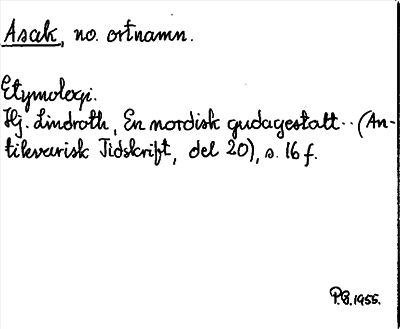 Asak, no. ortnamn.
Etymologi.
Hj. Lindroth, En nordisk gudagestalt.. (An-
tikvarisk Tidskrift, del 20), s. 16 f.
P.B. 1955.